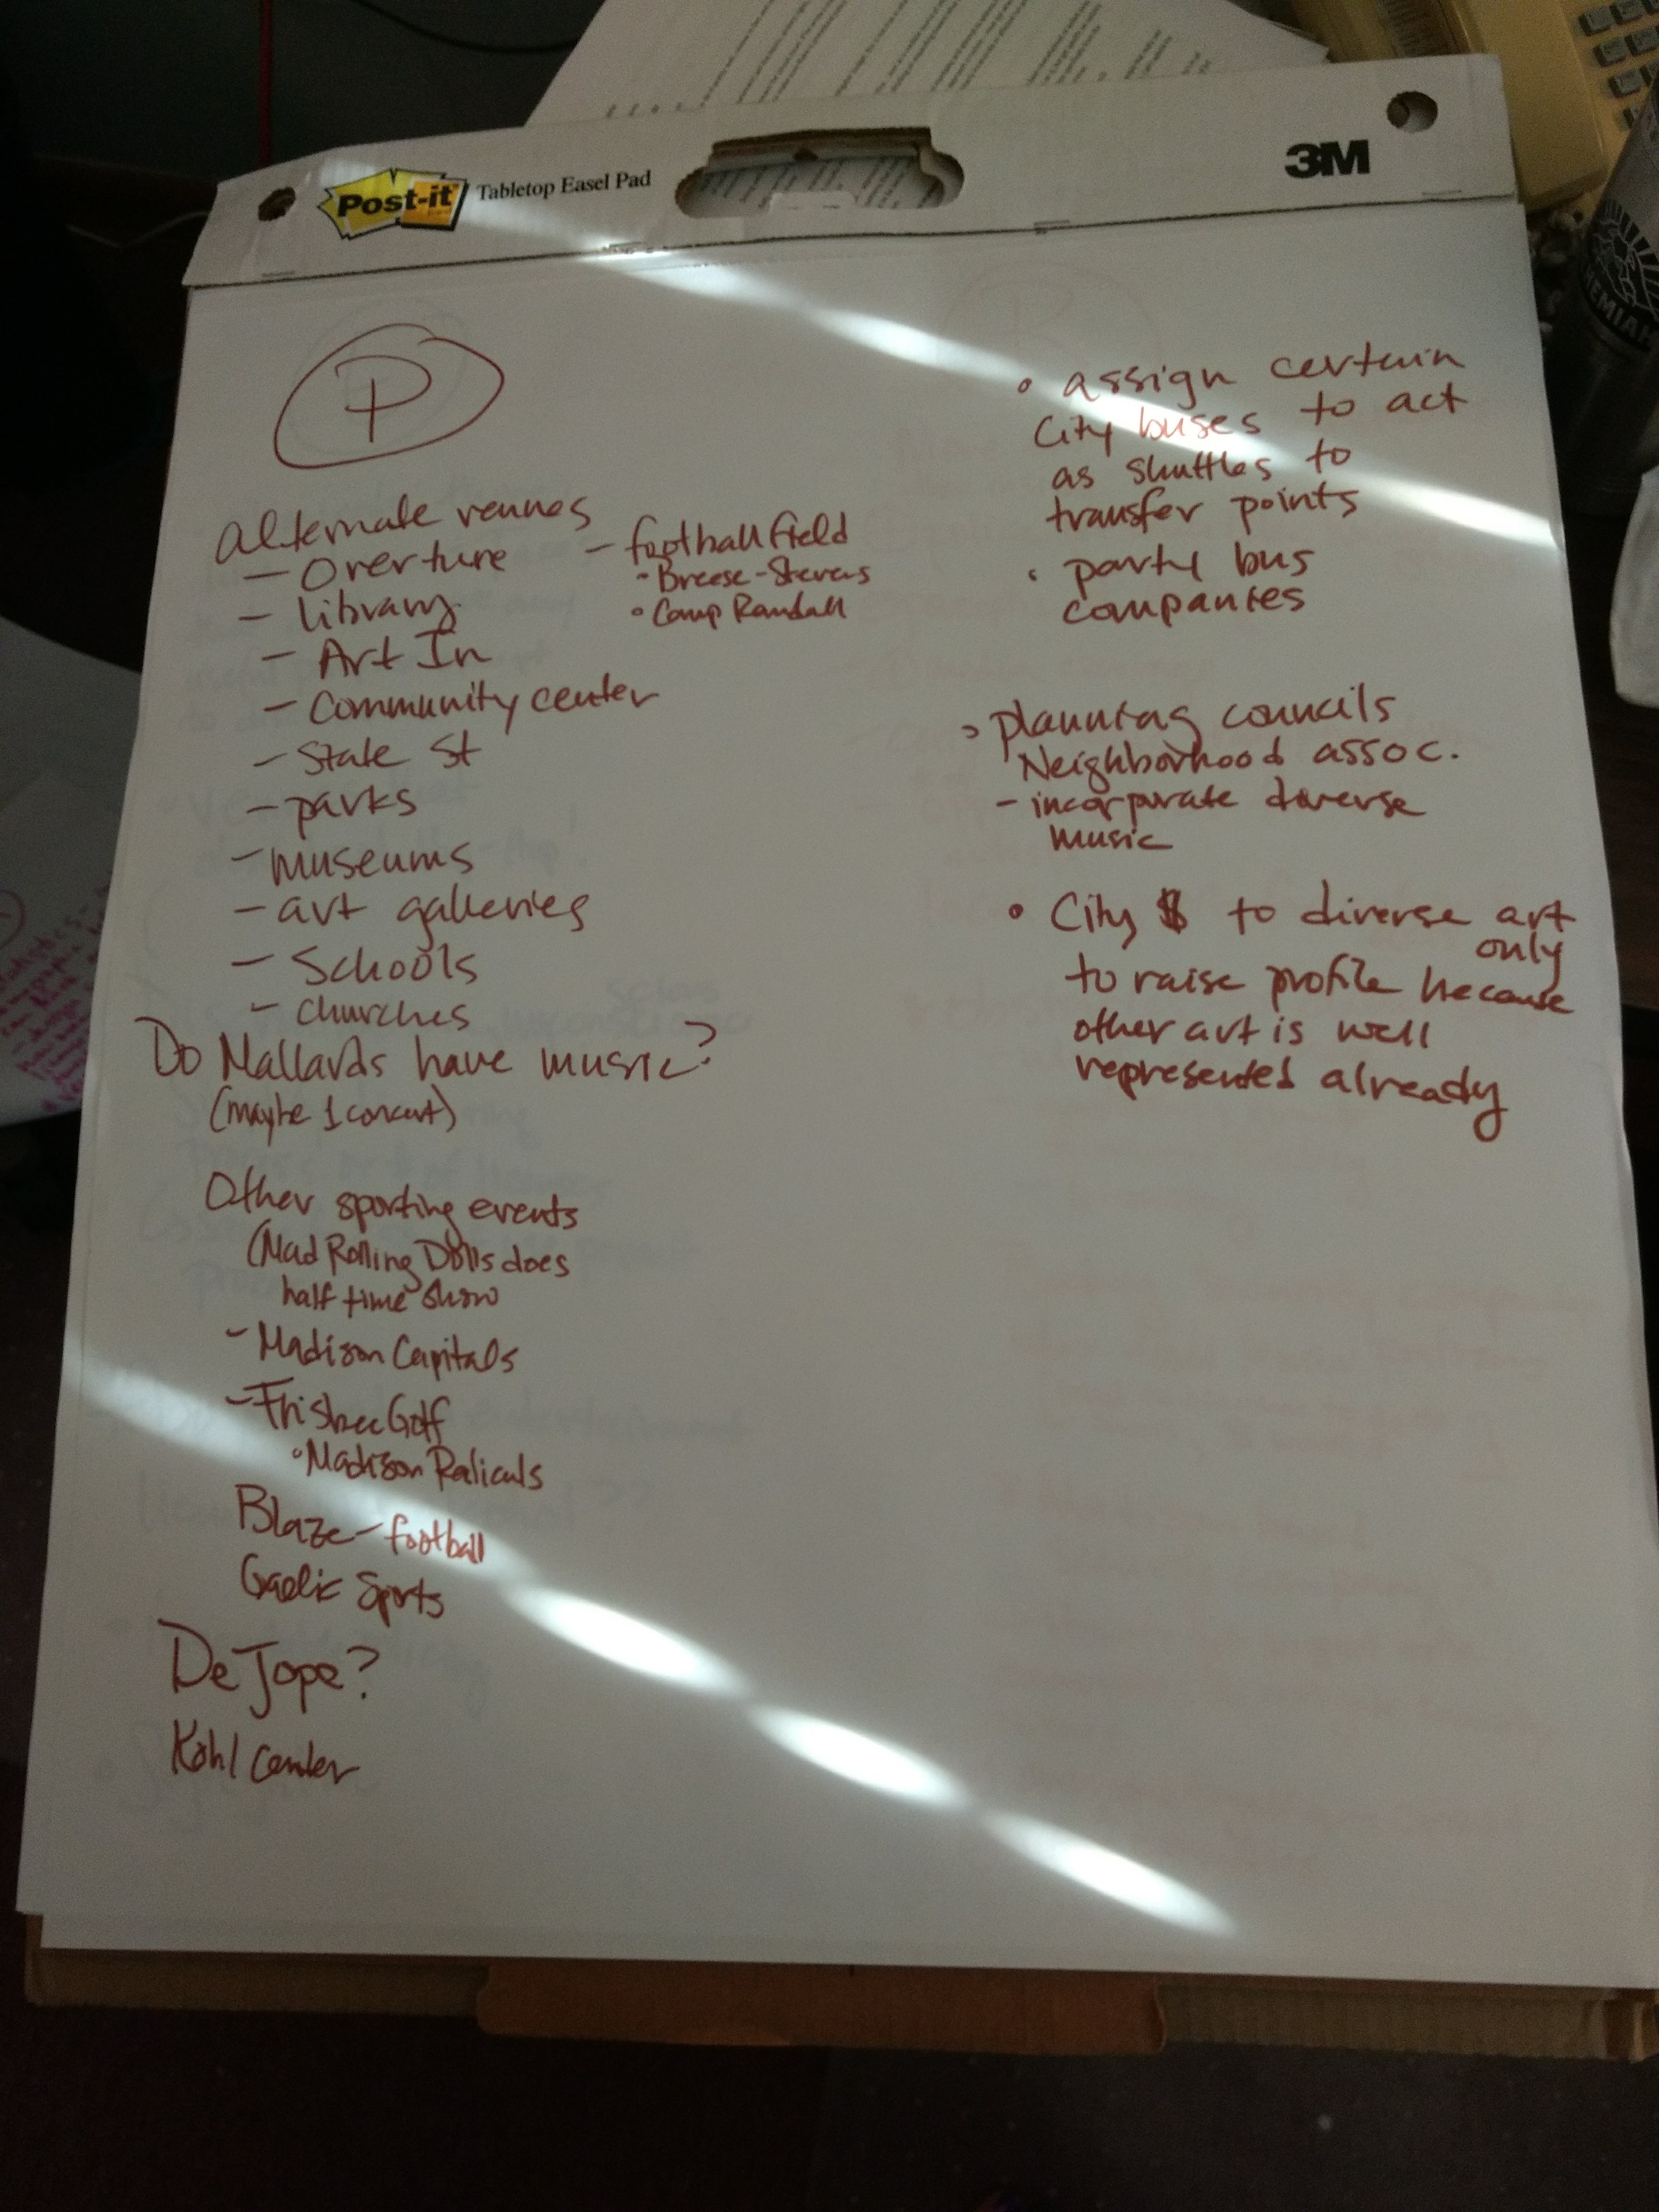 Post-it Tabletop Easel Pad
3M
P
alternate venues
- Overture
- library
- Art In
- Community center
- State St
- parks
- museums
- art galleries
- Schools
- churches
- football field
• Breese-Stevens
• Camp Randall
Do Mallards have music?
(maybe 1 concert)
Other sporting events
(Mad Rolling Dolls does
half time show
- Madison Capitals
- Frisbee Golf
• Madison Radicals
Blaze - football
Gaelic Sports
De Jope?
Kohl Center
• assign certain
City buses to act
as shuttles to
transfer points
• party bus
companies
• planning councils
Neighborhood assoc.
- incorporate diverse
music
• City $ to diverse art
only
to raise profile because
other art is well
represented already